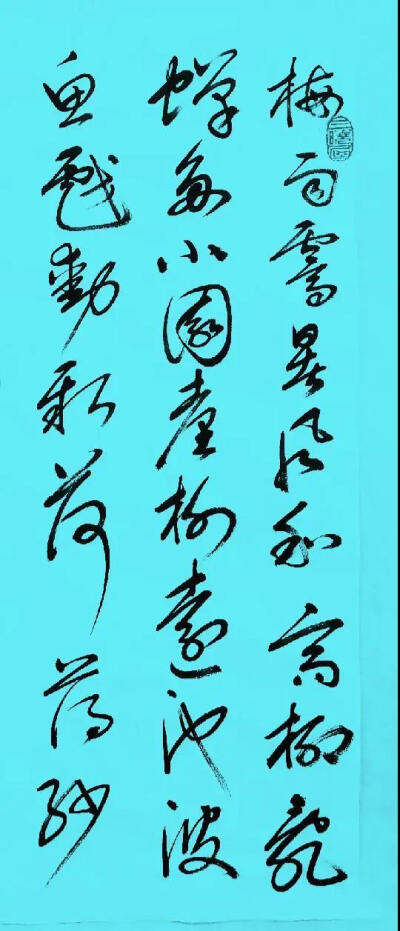 梅雨霽暑風和高柳亂
蟬多小園臺榭遠池波
魚戲動新荷薄紗